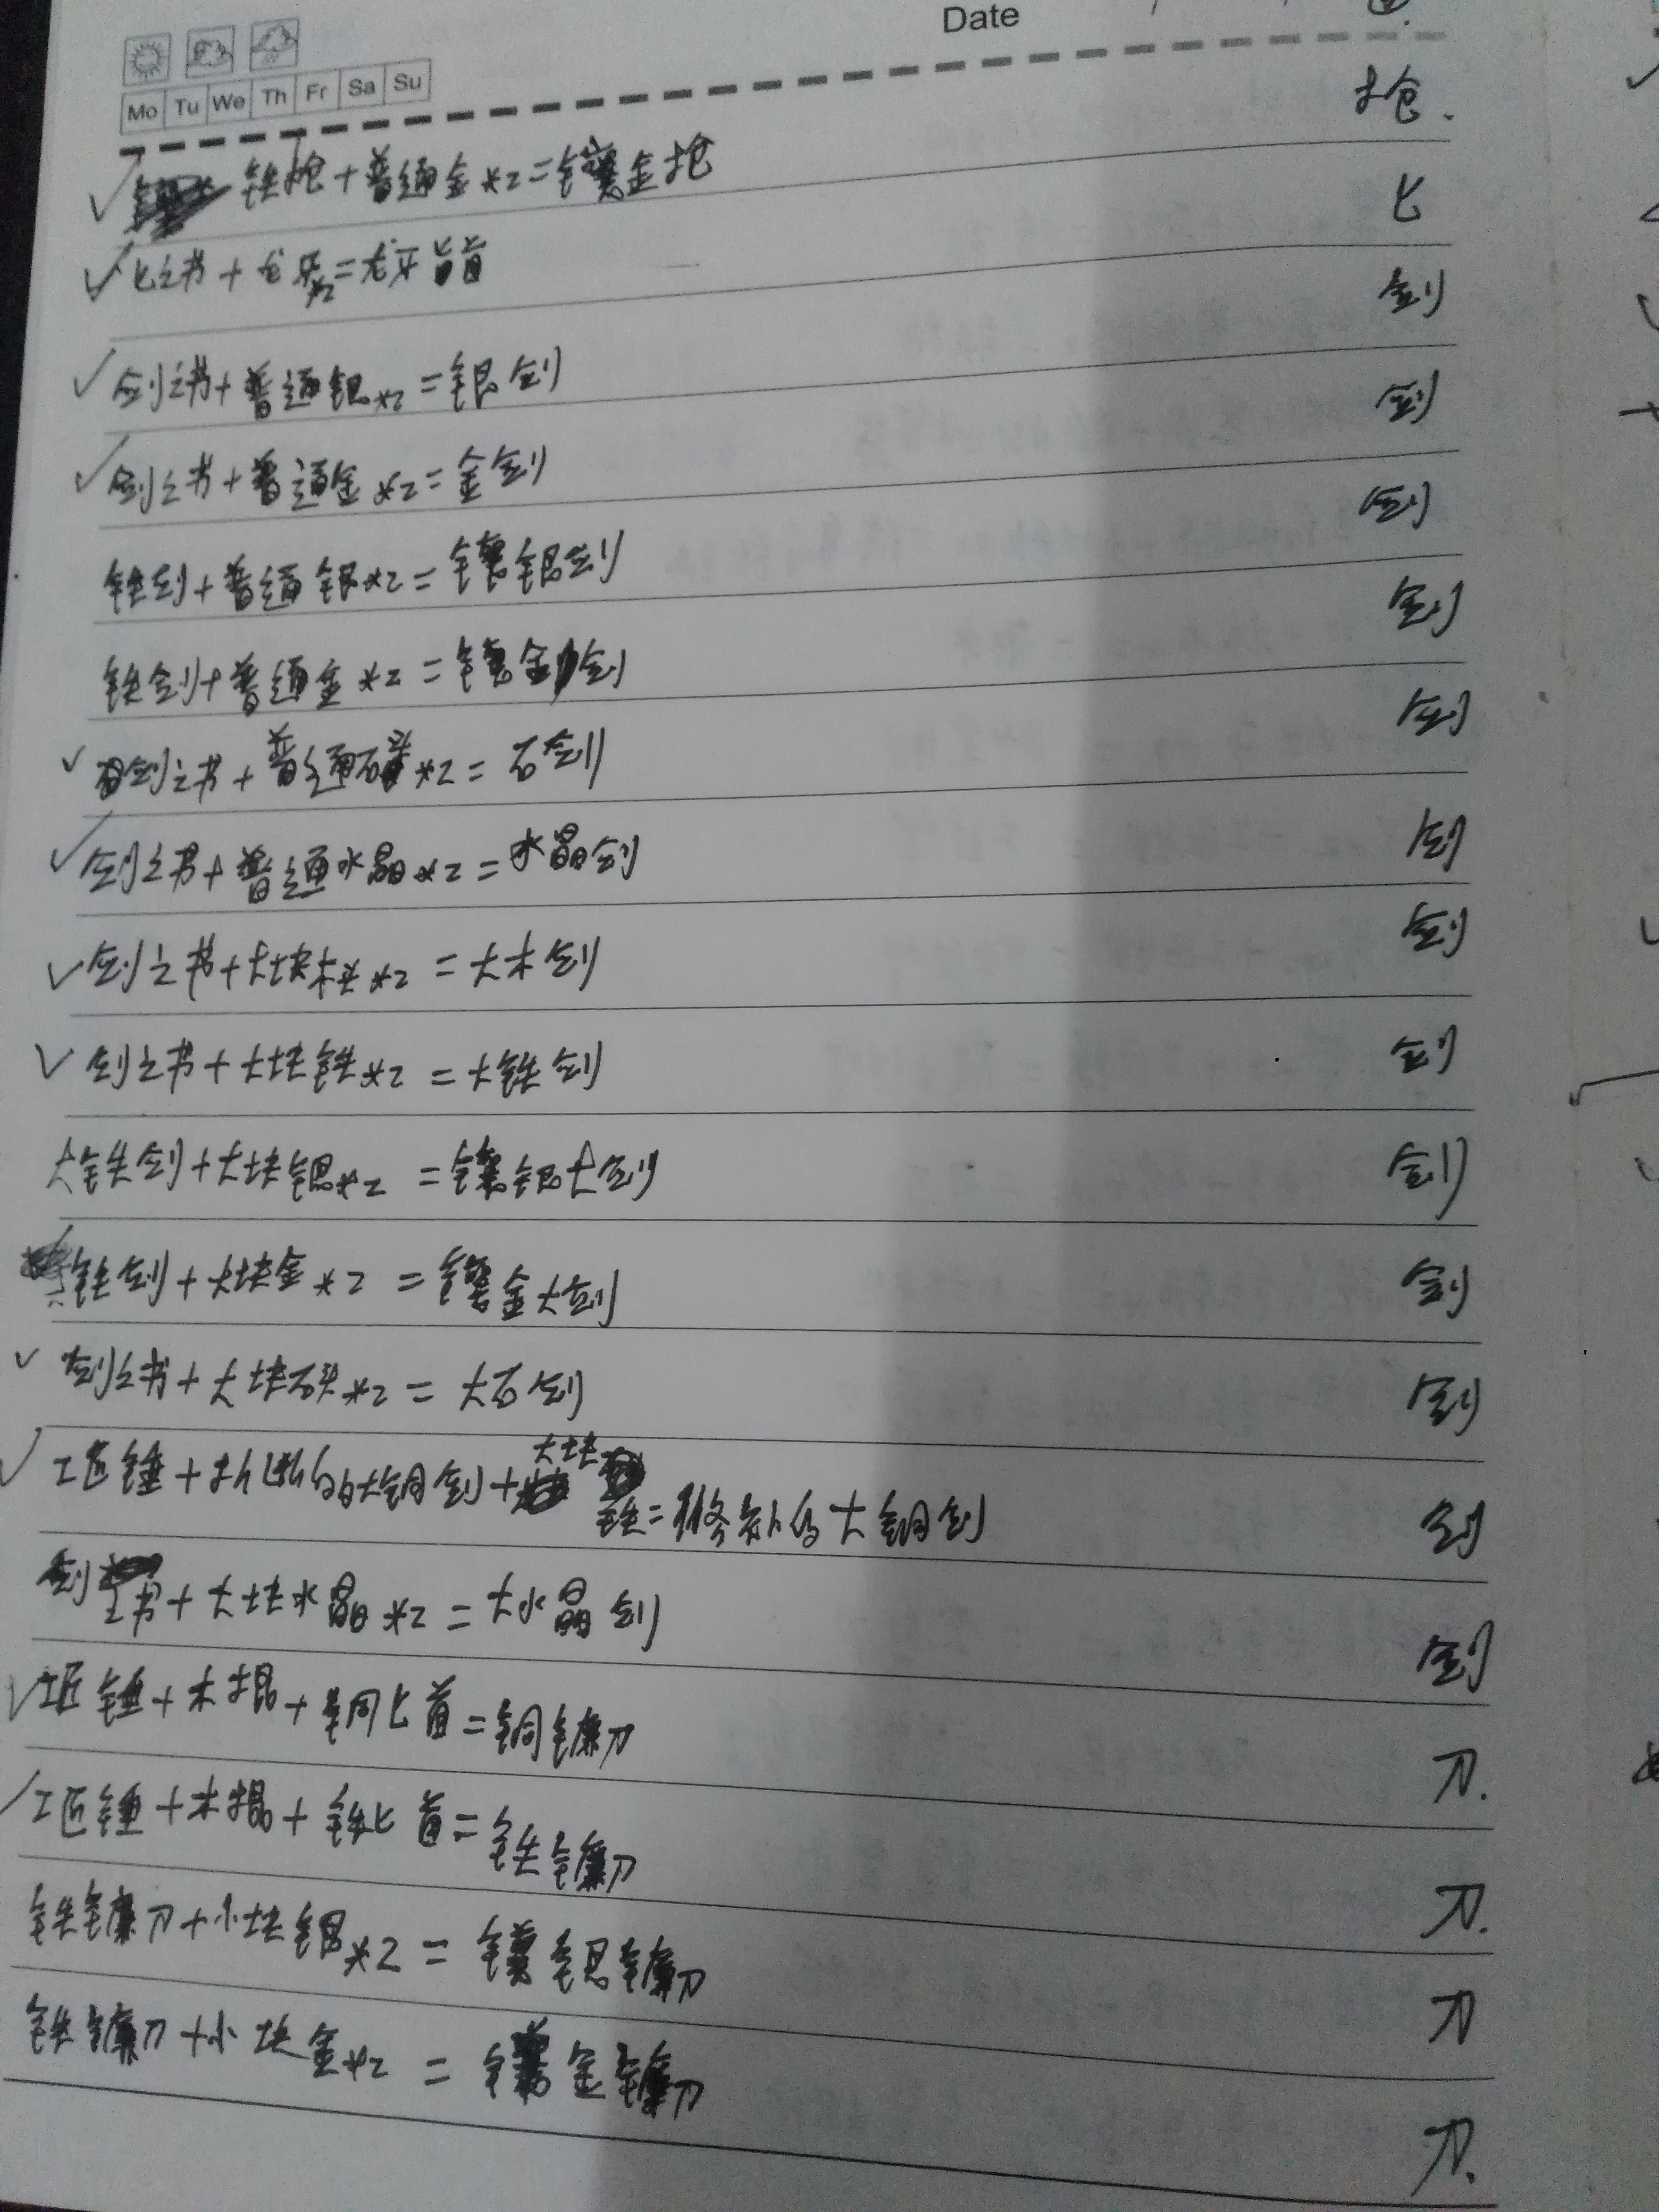 Date
Mo Tu We Th Fr Sa Su
✓ 铁枪+普通金*2=镶金枪 枪.
✓匕之书+龙牙*2=龙牙匕首 匕
✓剑之书+普通银*2=银剑 剑
✓剑之书+普通金*2=金剑 剑
铁剑+普通银*2=镶银剑 剑
铁剑+普通金*2=镶金剑 剑
✓剑之书+普通石头*2=石剑 剑
✓剑之书+普通水晶*2=水晶剑 剑
✓剑之书+大块木头*2=大木剑 剑
✓剑之书+大块铁*2=大铁剑 剑
大铁剑+大块银*2=镶银大剑 剑
铁剑+大块金*2=镶金大剑 剑
✓剑之书+大块石头*2=大石剑 剑
✓工匠锤+折断的大铜剑+大块铁=修补的大铜剑 剑
剑之书+大块水晶*2=大水晶剑 剑
✓工匠锤+木棍+铜匕首=铜镰刀 刀.
✓工匠锤+木棍+铁匕首=铁镰刀 刀.
铁镰刀+小块银*2=镶银镰刀 刀
铁镰刀+小块金*2=镶金镰刀 刀.